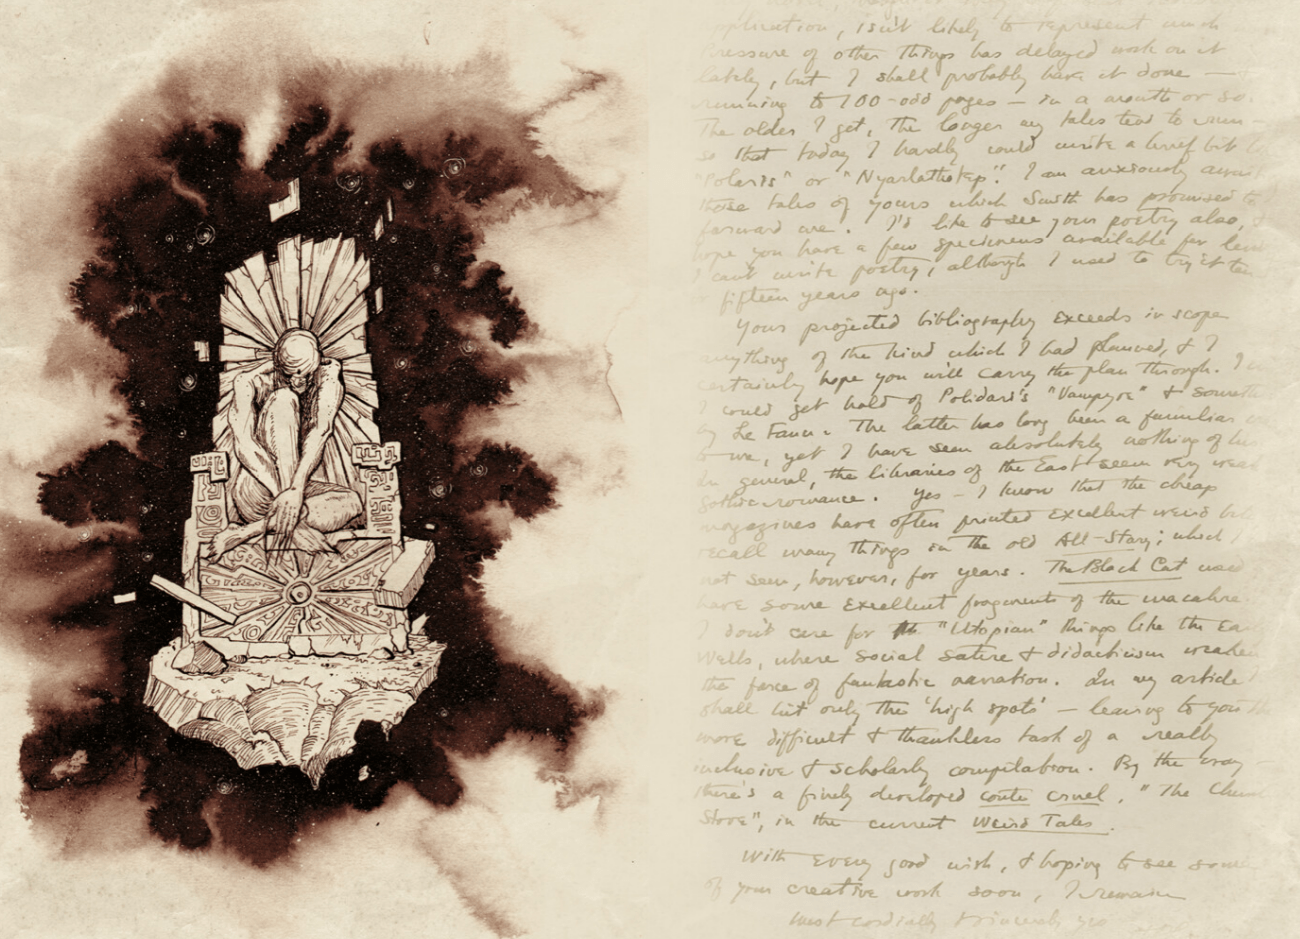 isn't likely to represent much
pressure of other things has delayed work on it
lately, but I shall probably have it done —
running to 100-odd pages — in a month or so.
The older I get, the longer my tales tend to run —
so that today I hardly could write a brief bit
"Polaris" or "Nyarlathotep". I am anxiously
those tales of yours which Smith has promised to
forward me. I'd like to see your poetry also, &
hope you have a few specimens available for
I can't write poetry, although I used to try it
fifteen years ago.
Your projected bibliography exceeds in scope
anything of the kind which I had planned, & I
certainly hope you will carry the plan through. I
I could get hold of Polidori's "Vampyre" &
by Le Fanu. The latter has long been a familiar
to me, yet I have seen absolutely nothing of his
In general, the libraries of the East seem very weak
Gothic romance. Yes — I know that the cheap
magazines have often printed excellent weird
recall many things in the old All-Story; which I
not seen, however, for years. The Black Cat used
have some excellent fragments of the macabre.
I don't care for the "Utopian" things like the
Wells, where social satire & didacticism weaken
the force of fantastic narration. In my article
shall list only the 'high spots' — leaving to you the
more difficult & thankless task of a really
inclusive & scholarly compilation. By the way —
there's a finely developed conte cruel, "The
Stove", in the current Weird Tales.
With every good wish, & hoping to see some
of your creative work soon, I remain
most cordially & sincerely yrs